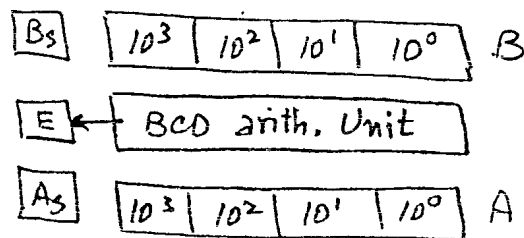 Bs 10³ 10² 10¹ 10⁰ B
E BCD arith. Unit
As 10³ 10² 10¹ 10⁰ A